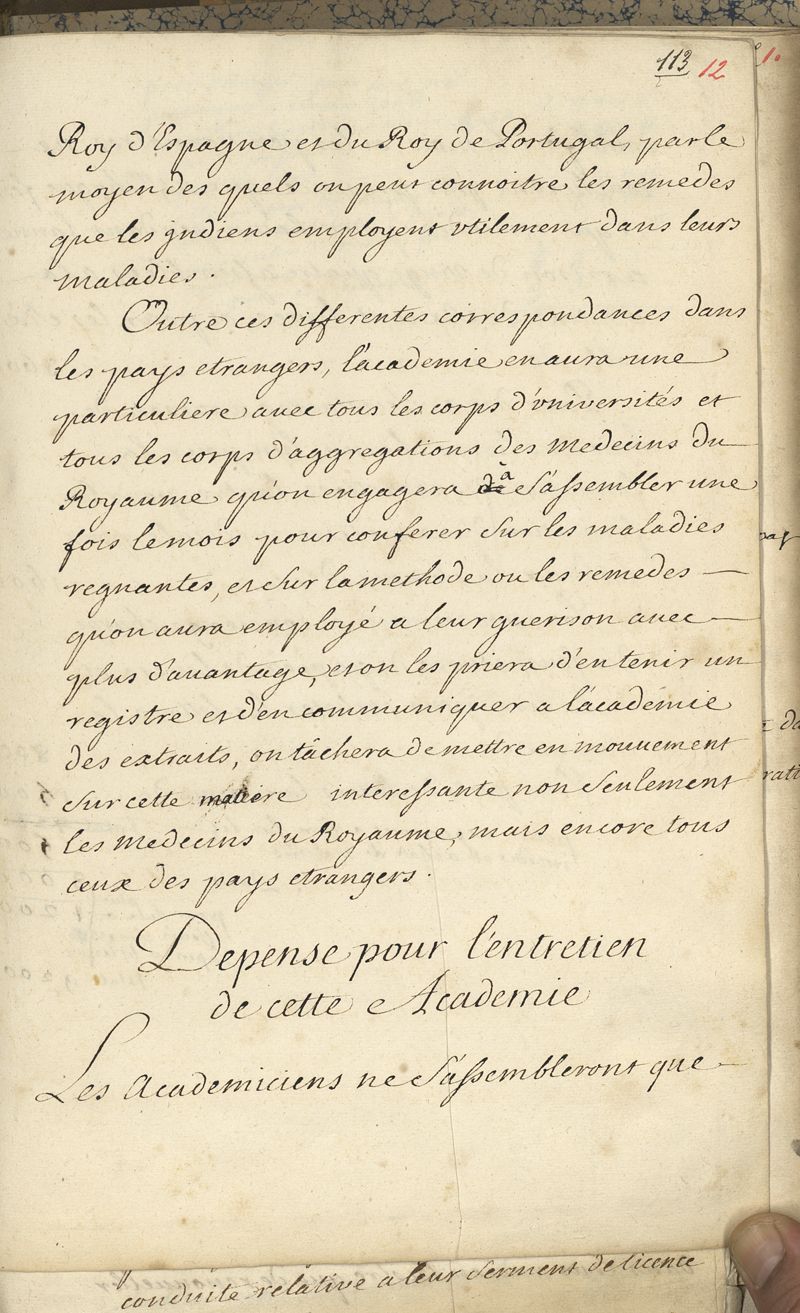 113 12
Roy d'Espagne et du Roy de Portugal, par le
moyen des quels on peut connoitre les remedes
que les jndiens employent vtilement dans leurs
maladies.
Outre ces differentes correspondances dans
les pays etrangers, l'academie en aura une
particuliere avec tous les corps d'vniversités et
tous les corps d'aggregations des medecins du
Royaume qu'on engagera à s'assembler une
fois le mois pour conferer sur les maladies
regnantes, et sur la methode ou les remedes —
qu'on aura employé a leur guerison avec —
plus d'auantage, et on les priera d'en tenir un
registre et d'en communiquer a l'academie
des extraits, on tâchera de mettre en mouuement
sur cette matiere interessante non seulement
les medecins du Royaume, mais encore tous
ceux des pays etrangers.
Depense pour l'entretien
de cette Academie
Les Academiciens ne s'assembleront que —
conduite relative a leur serment de licence